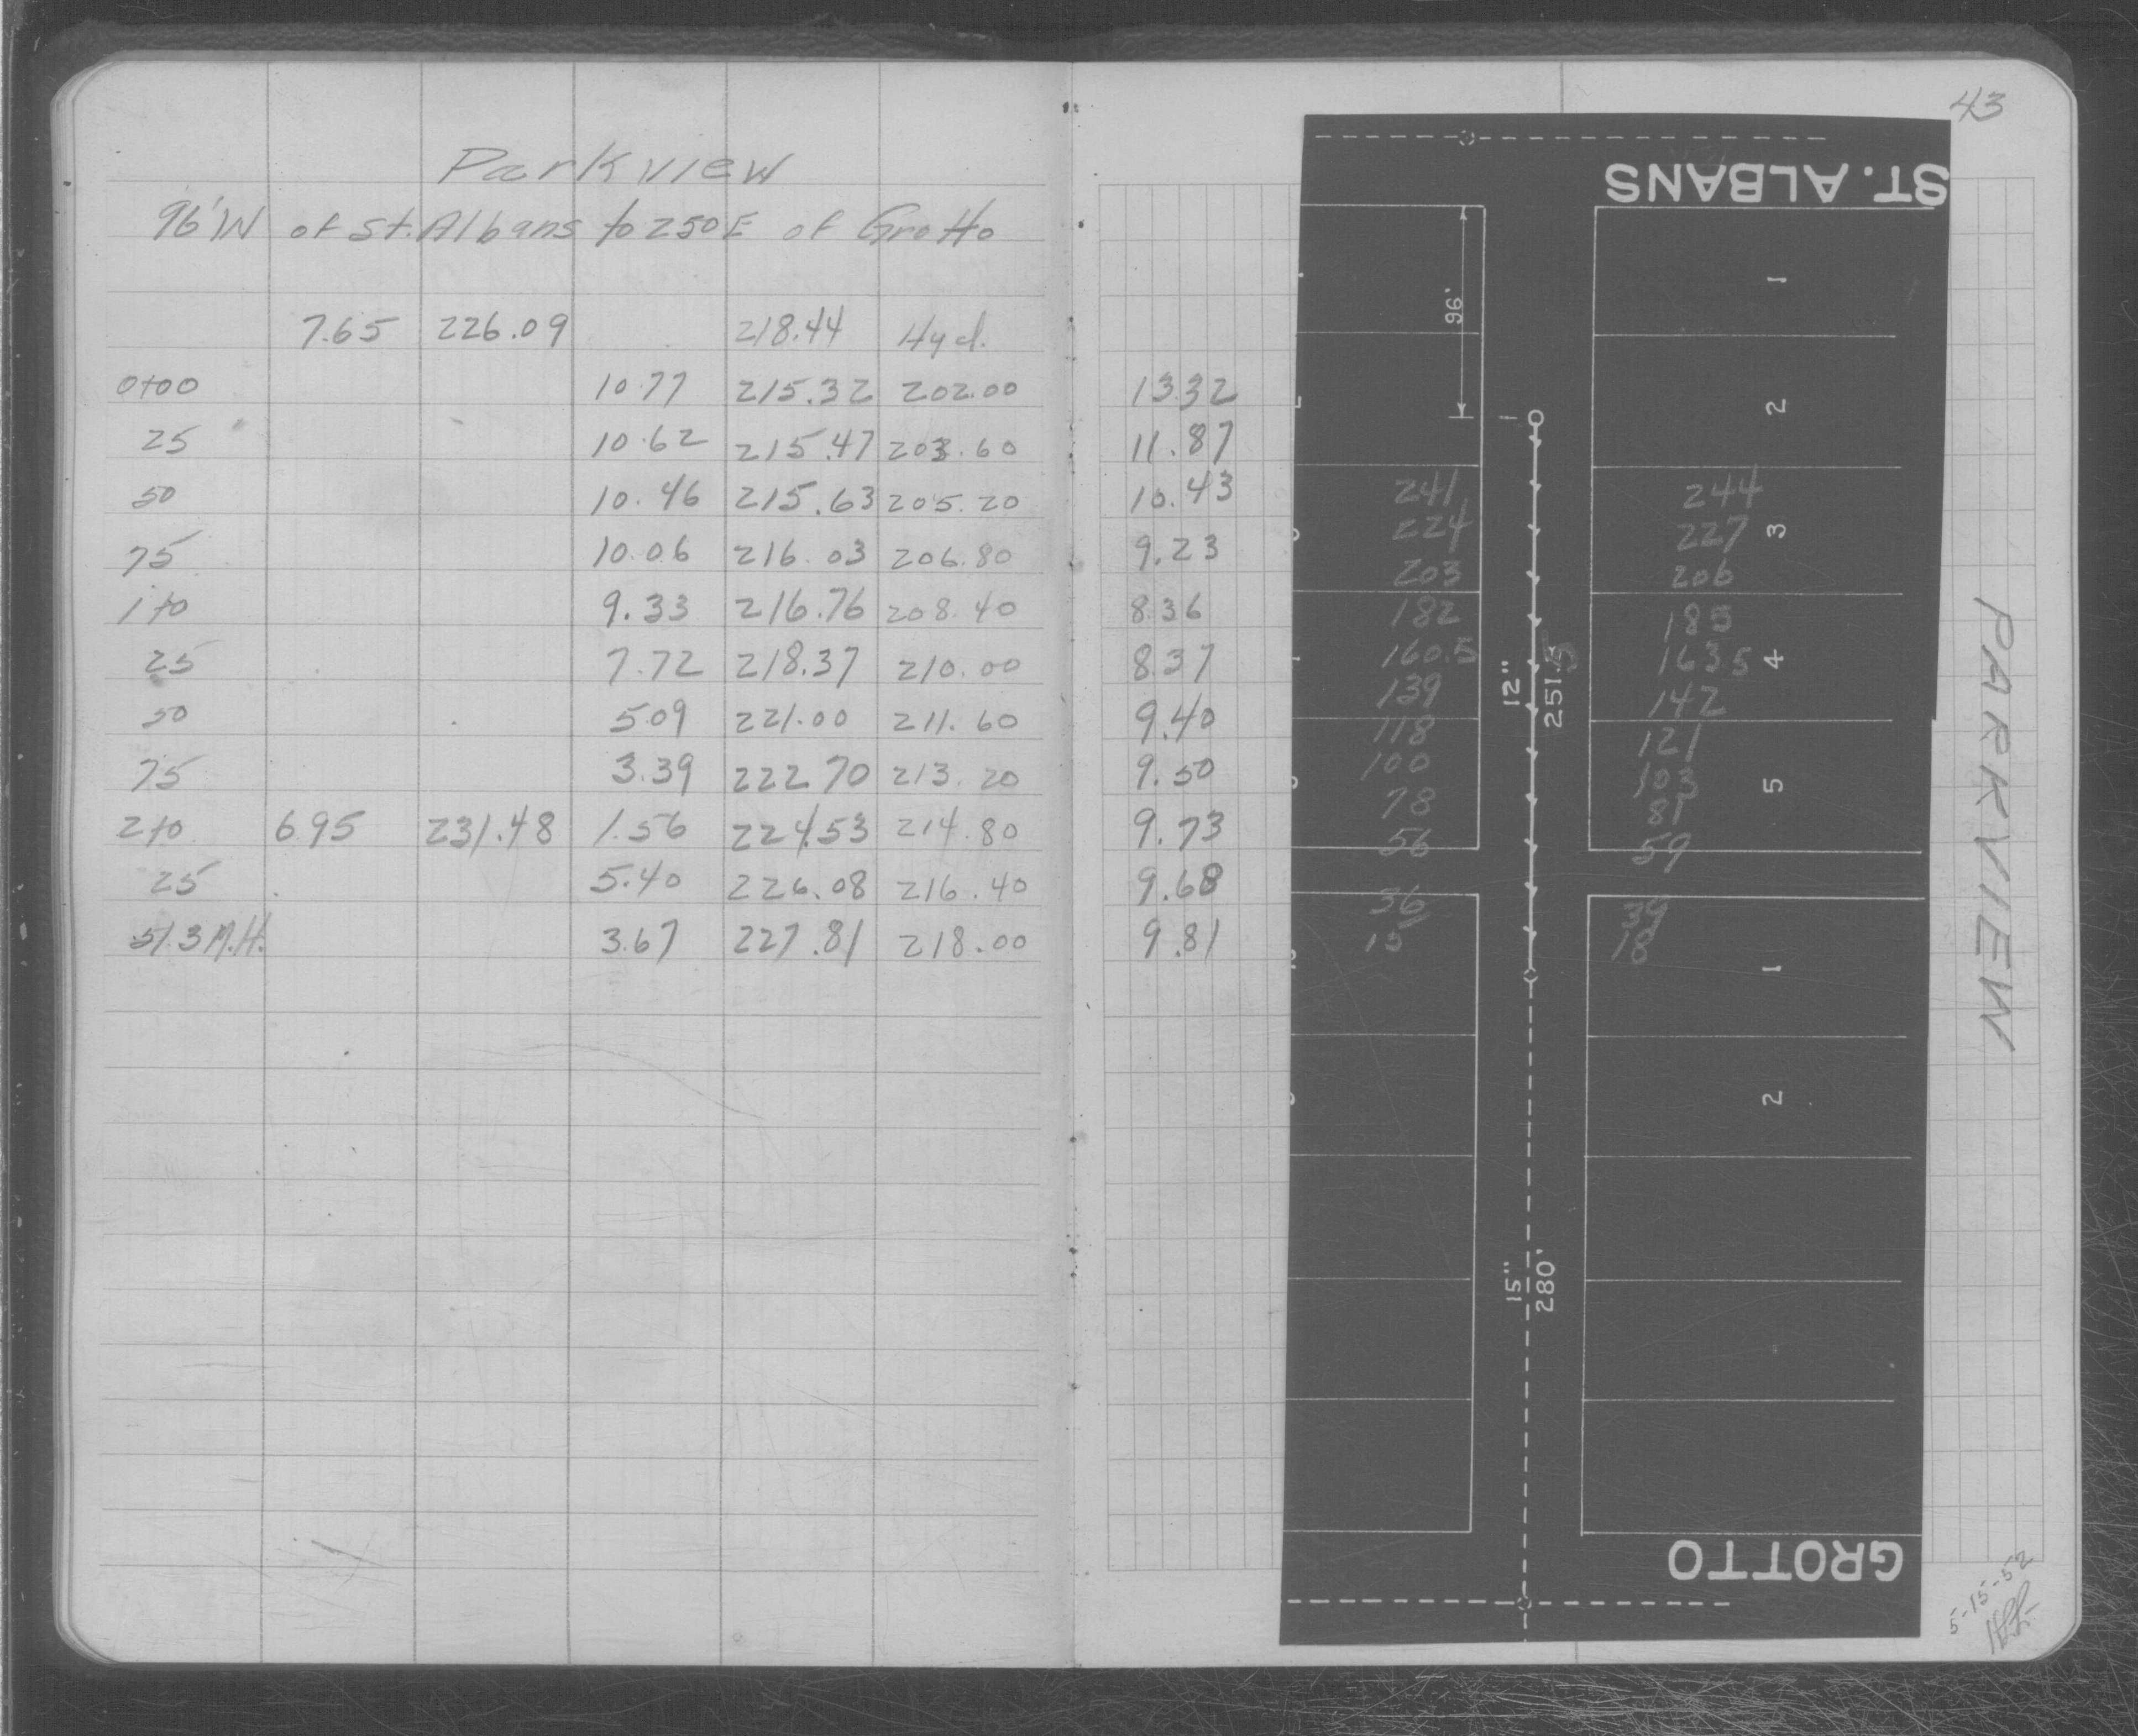 Parkview
96'W of St. Albans to 250E of Grotto
7.65 226.09 218.44 Hyd.
0+00 10.77 215.32 202.00 13.32
25 10.62 215.47 203.60 11.87
50 10.46 215.63 205.20 10.43
75 10.06 216.03 206.80 9.23
1+0 9.33 216.76 208.40 8.36
25 7.72 218.37 210.00 8.37
50 5.09 221.00 211.60 9.40
75 3.39 222.70 213.20 9.50
2+0 6.95 231.48 1.56 224.53 214.80 9.73
25 5.40 226.08 216.40 9.68
51.3 M.H. 3.67 227.81 218.00 9.81
43
ST. ALBANS
96'
1
2
241 244
224 227 3
203 206
182 185
160.5 163.5 4
12"
251.5
139 142
118 121
100 103
78 87 5
56 59
36 39
15 18
1
2
15"
280'
GROTTO
PARKVIEW
5-15-52